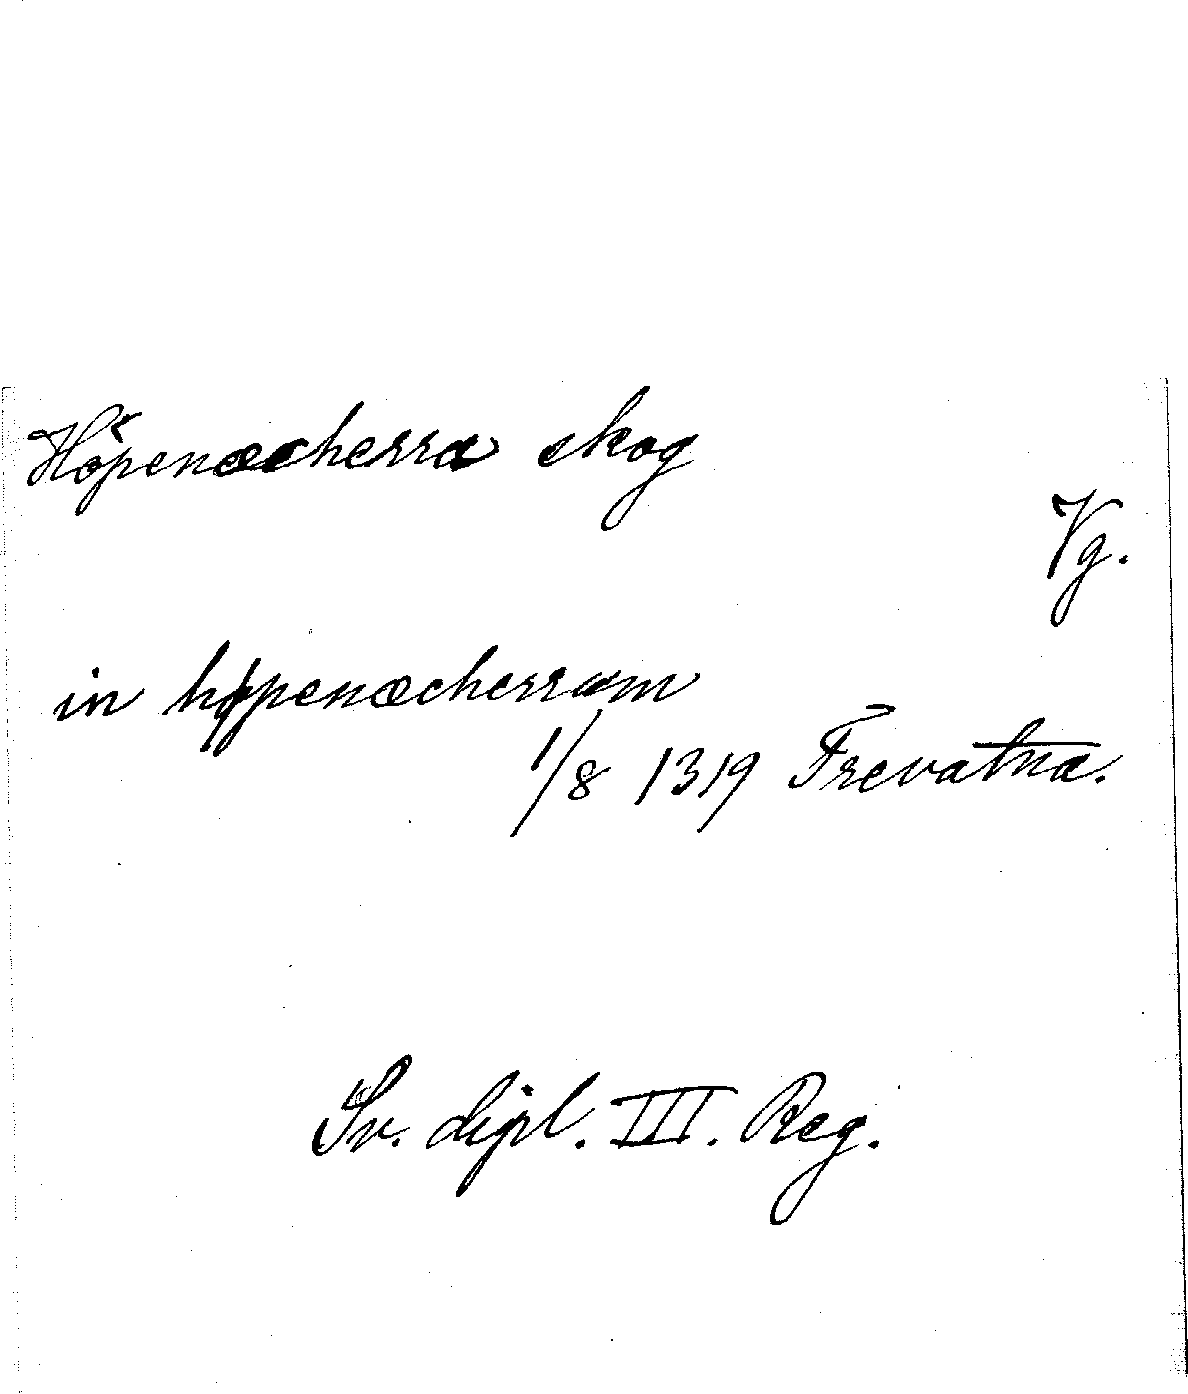 Höpenæcherra skog
Vg.
in høpenæcherrum
1/8 1319 Frevatna.
Sv. dipl. III. Reg.